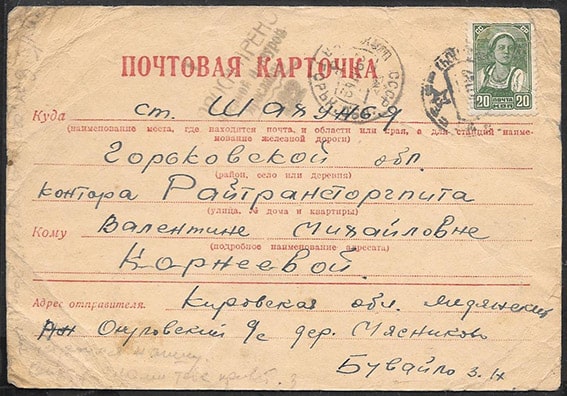 ПОЧТОВАЯ КАРТОЧКА
СССР
ПОЧТА
20 КОП 20
Куда ст. Шахунья
(наименование места, где находится почта, и области или края, а для станций наиме-
нование железной дороги)
Горьковской обл.
(район, село или деревня)
контора Райтрансторгпита
(улица, № дома и квартиры)
Кому Валентине Михайловне
(подробное наименование адресата)
Корнеевой.
Адрес отправителя. Кировская обл.
с/с дер. Мясниково
Бувайло З. Н